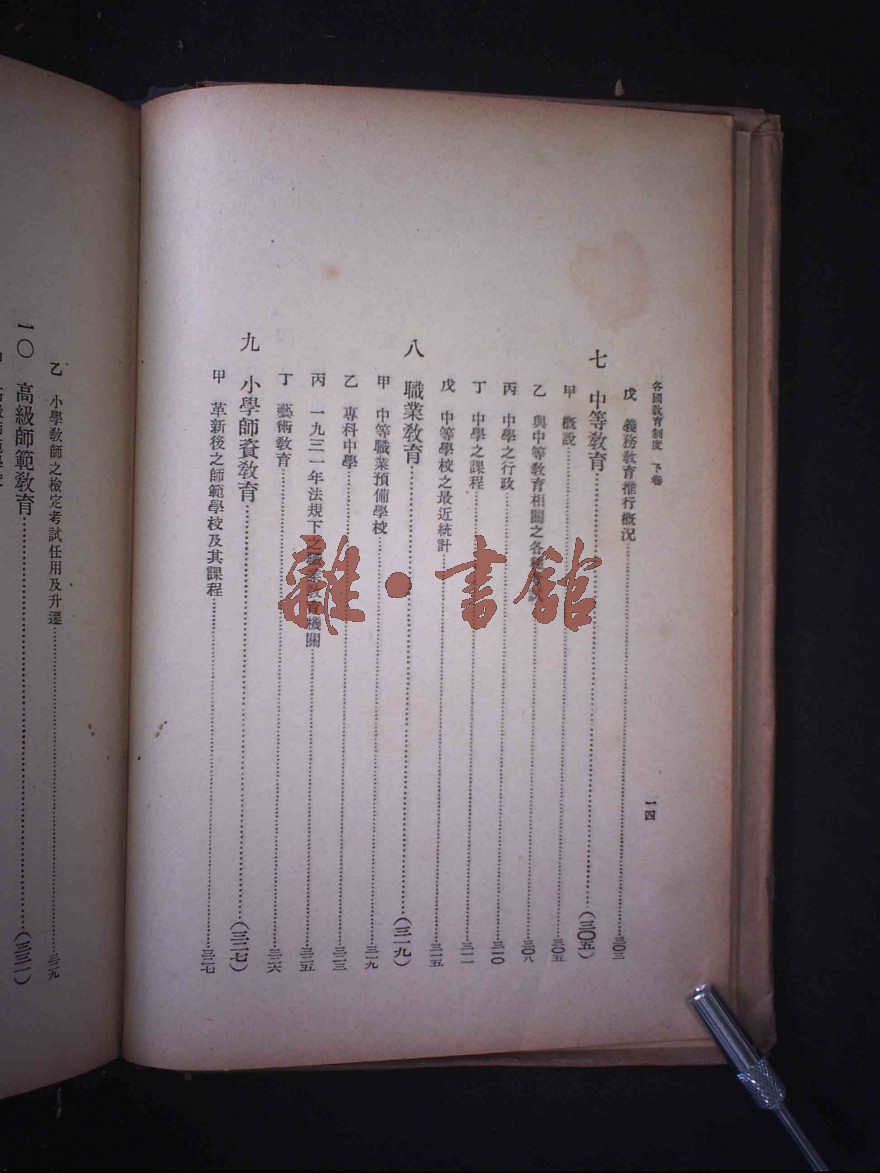 各國教育制度 下卷
一四
戊 義務教育推行概況 三〇三
七 中等教育 (三〇五)
甲 概說 三〇五
乙 與中等教育相關之各種 三〇八
丙 中學之行政 三一〇
丁 中學之課程 三一一
戊 中等學校之最近統計 三一五
八 職業教育 (三一九)
甲 中等職業預備學校 三一九
乙 專科中學 三二三
丙 一九三一年法規下之職業教育機關 三二五
丁 藝術教育 三二六
九 小學師資教育 (三二七)
甲 革新後之師範學校及其課程 三二七
乙 小學教師之檢定考試任用及升遷 三二九
一〇 高級師範教育 (三三一)
雜·書館